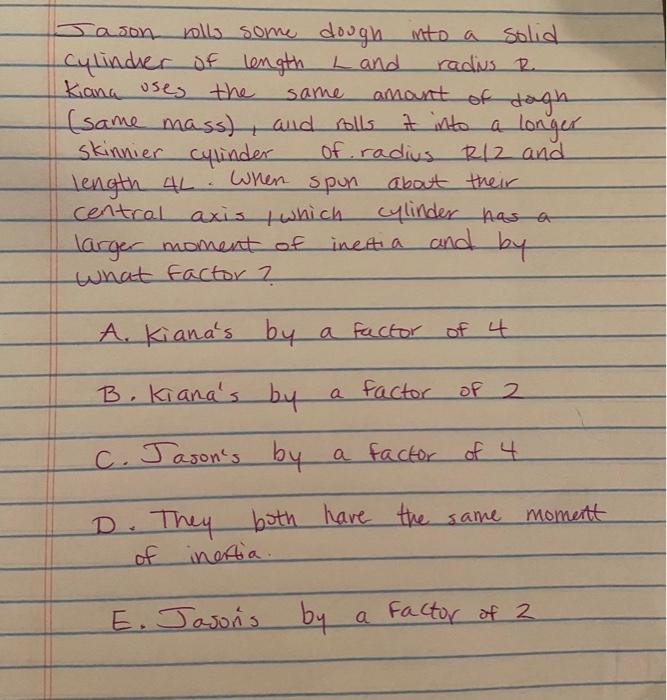 Jason rolls some dough into a solid
cylinder of length L and radius R.
Kiana uses the same amount of dogh
(same mass), and rolls it into a longer
skinnier cylinder of radius R/2 and
length 4L. When spun about their
central axis, which cylinder has a
larger moment of inertia and by
what factor?
A. Kiana's by a factor of 4
B. Kiana's by a factor of 2
C. Jason's by a factor of 4
D. They both have the same moment
of inertia.
E. Jason's by a factor of 2